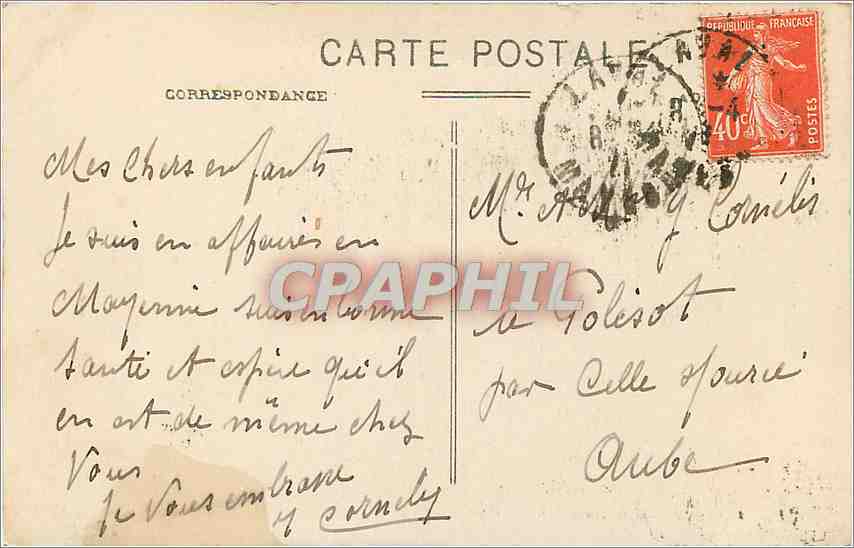 CARTE POSTALE
CORRESPONDANCE
RÉPUBLIQUE FRANÇAISE
40c
POSTES
LAVAL
MAYENNE
Mes chers enfants
Je suis en affaires en
Mayenne suis en bonne
santé et espère qu'il
en est de même chez
Vous
Je vous embrasse
Cornély
CPARAMA
CPAPHIL
Cornélis
a Polisot
par Celle s/ource
Aube